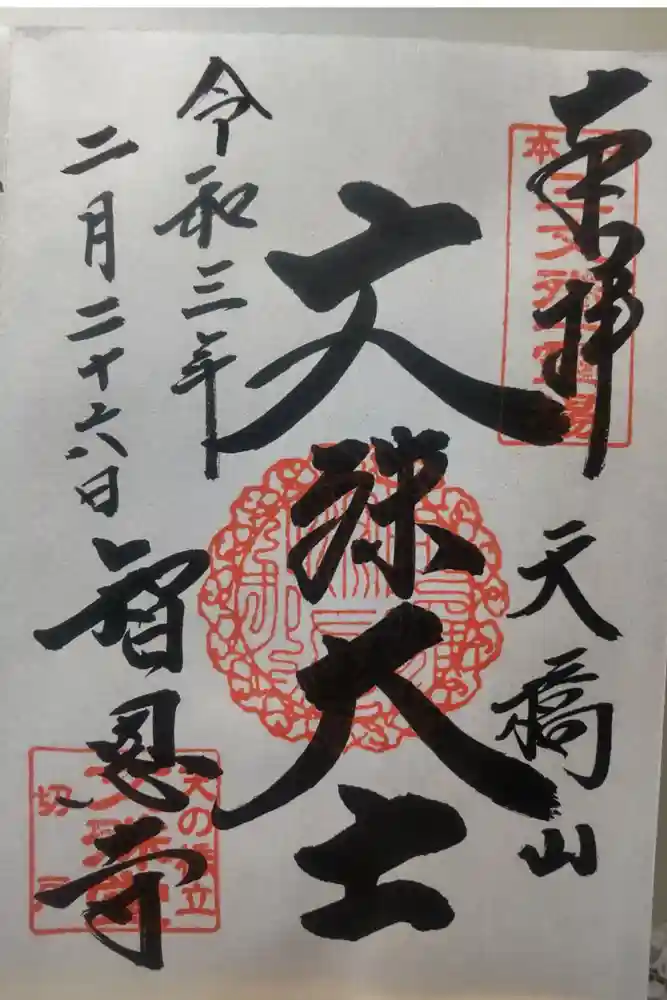 奉拝
天橋山
文殊大士
令和三年
二月二十六日
智恩寺
日本三文殊霊場
天の橋立
文殊堂
切戸